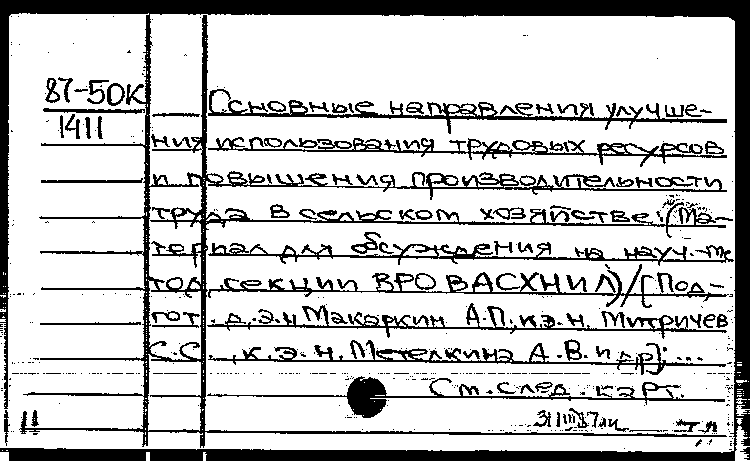 87-50К
1411
Основные направления улучше-
ния использования трудовых ресурсов
и повышения производительности
труда в сельском хозяйстве: (Ма-
териал для обсуждения на науч.-ме
тод. секции ВРО ВАСХНИЛ)/[Под-
гот. д.э.н Макаркин А.П., к.э.н. Митричев
С.С., к.э.н. Метелкина А.В. и др]; ...
См. след. карт.
11